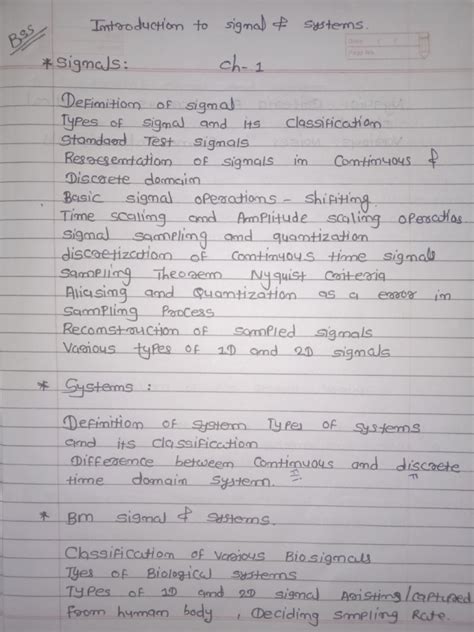 Bss
Introduction to signal & systems.
* Signals: Ch-1
Definition of signal
Types of signal and its Classification
Standard Test signals
Resresentation of signals in Continuous &
Discrete domain
Basic signal operations - shifiting
Time scaling and Amplitude scaling operatios
signal sampling and quantization
discretization of continuous time signals
Sampling Theorem Nyquist Criteria
Aliasing and Quantization as a error in
Sampling Process
Reconstruction of sampled signals
Various types of 1D and 2D signals
* Systems :
Definition of system Types of systems
and its Classification
Difference between Continuous and discrete
time domain System.
* Bm signal & systems.
Classification of various Biosignals
Tyes of Biological systems
Types of 1D and 2D signal Aristing/captured
from human body , Deciding smpling Rate.